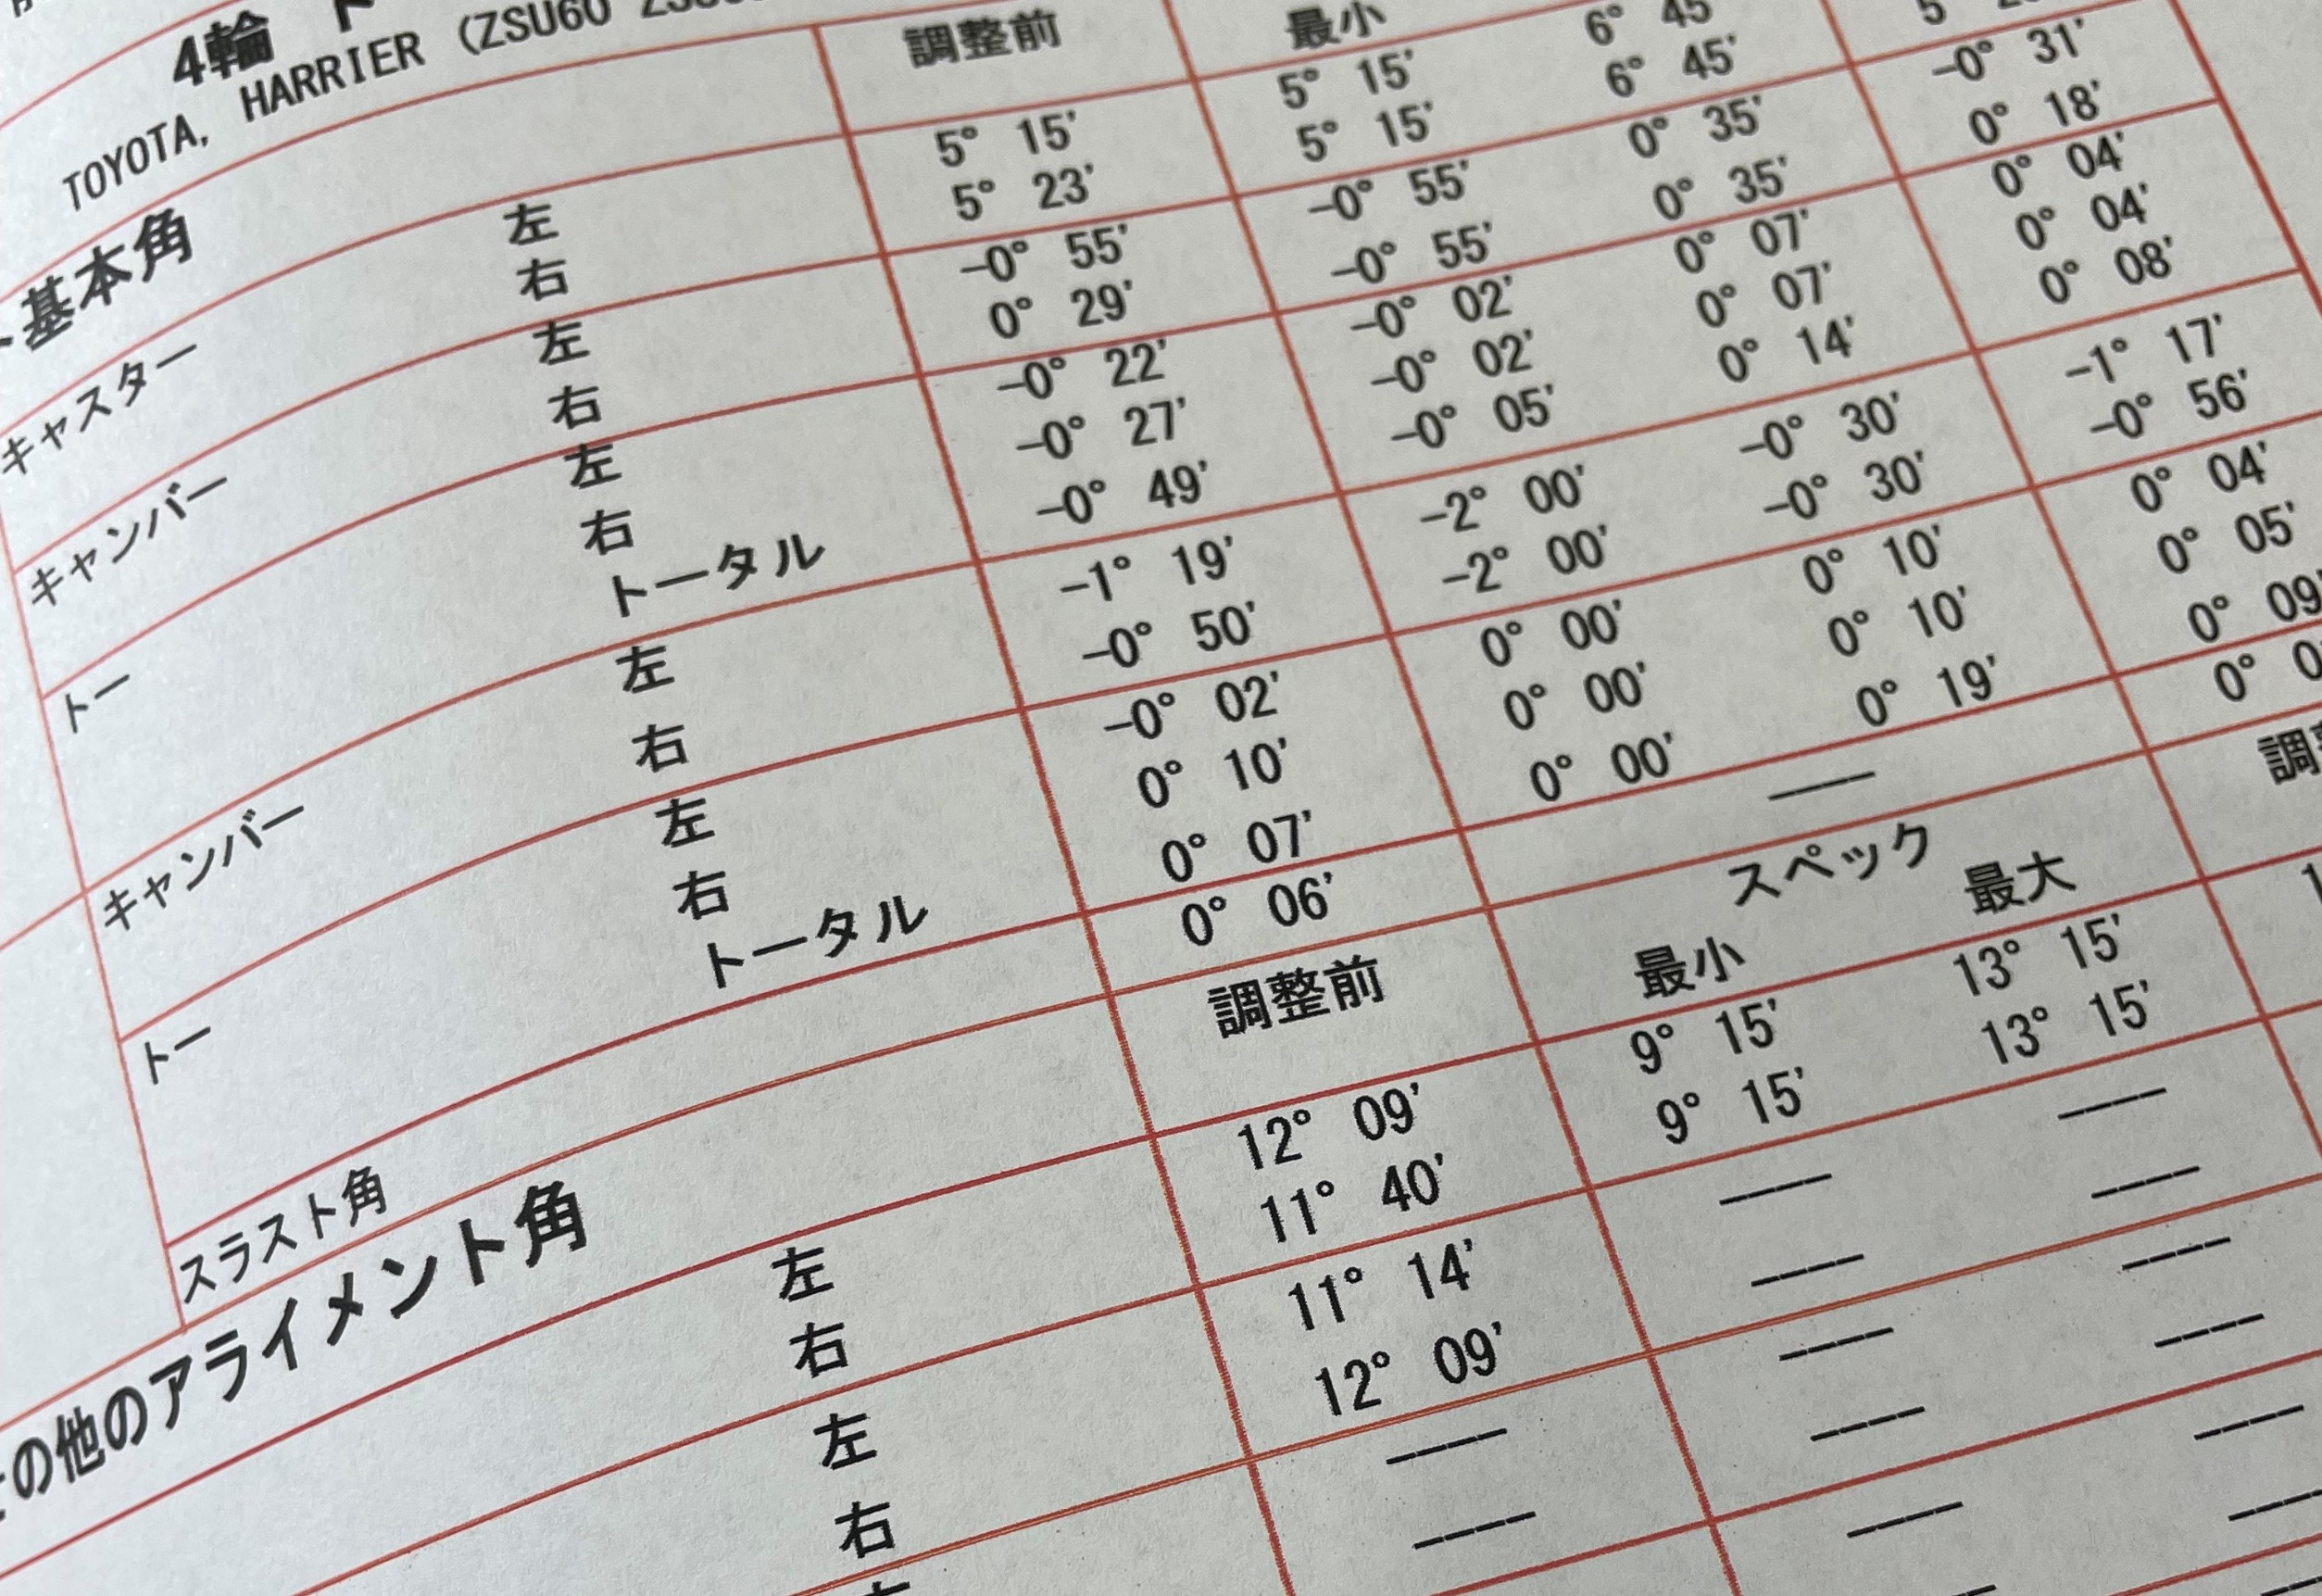 4輪
TOYOTA, HARRIER (ZSU60
基本角 調整前 最小
キャスター 左 5° 15' 5° 15' 6° 45'
右 5° 23' 5° 15' 6° 45'
キャンバー 左 -0° 55' -0° 55' 0° 35' -0° 31'
右 0° 29' -0° 55' 0° 35' 0° 18'
トー 左 -0° 22' -0° 02' 0° 07' 0° 04'
右 -0° 27' -0° 02' 0° 07' 0° 04'
トータル -0° 49' -0° 05' 0° 14' 0° 08'
キャンバー 左 -1° 19' -2° 00' -0° 30' -1° 17'
右 -0° 50' -2° 00' -0° 30' -0° 56'
トー 左 -0° 02' 0° 00' 0° 10' 0° 04'
右 0° 10' 0° 00' 0° 10' 0° 05'
トータル 0° 07' 0° 00' 0° 19' 0° 09'
スラスト角 0° 06' ---- 0°
の他のアライメント角 調整前 スペック 調
最小 最大
左 12° 09' 9° 15' 13° 15'
右 11° 40' 9° 15' 13° 15'
左 11° 14' ---- ----
右 12° 09' ---- ----
---- ---- ----
---- ---- ----